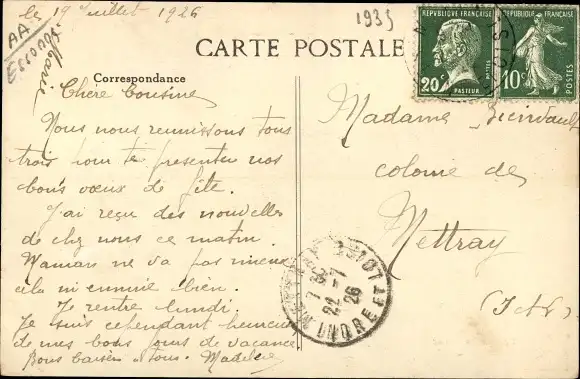 le 19 Juillet 1926
1935
AA
Marie
CARTE POSTALE
REPUBLIQUE FRANÇAISE
20c
PASTEUR
POSTES
REPUBLIQUE FRANÇAISE
10c
POSTES
Correspondance
Chère Cousine
Nous nous reunissons tous
trois pour te presenter nos
bons vœux de fête.
J'ai reçu des nouvelles
de chez nous ce matin.
Maman ne va pas mieux
cela m'ennuie bien.
Je rentre lundi.
Je suis cependant heureuse
de mes bons jours de vacances
Bons baisers à tous. Madeleine
Madame
colonie de
Mettray
(I et L)
INDRE ET LOIRE
22 -7
26